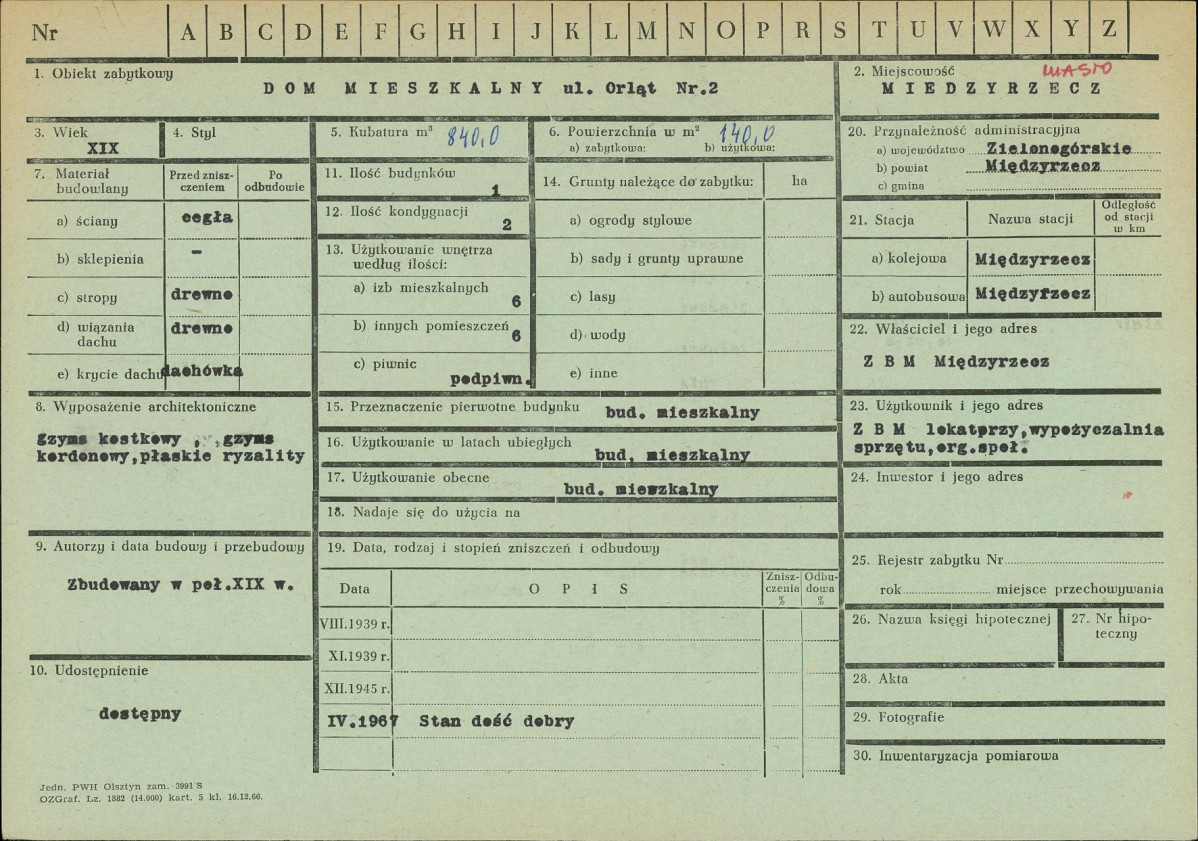 Nr A B C D E F G H I J K L M N O P R S T U V W X Y Z
1. Obiekt zabytkowy
DOM MIESZKALNY ul. Orląt Nr.2
2. Miejscowość MIASTO
MIEDZYRZECZ
3. Wiek
XIX
4. Styl
5. Kubatura m³ 840,0
6. Powierzchnia w m² 140,0
a) zabytkowa: b) użytkowa:
20. Przynależność administracyjna
a) województwo Zielonogórskie
b) powiat Międzyrzecz
c) gmina
7. Materiał budowlany
Przed znisz-
czeniem
Po
odbudowie
a) ściany cegła
b) sklepienia -
c) stropy drewno
d) wiązania
dachu drewno
e) krycie dachu dachówka
11. Ilość budynków
1
12. Ilość kondygnacji
2
13. Użytkowanie wnętrza
według ilości:
a) izb mieszkalnych
6
b) innych pomieszczeń
6
c) piwnic
podpiwn.
14. Grunty należące do zabytku: ha
a) ogrody stylowe
b) sady i grunty uprawne
c) lasy
d) wody
e) inne
21. Stacja Nazwa stacji
Odległość
od stacji
w km
a) kolejowa Międzyrzecz
b) autobusowa Międzyrzecz
22. Właściciel i jego adres
Z B M Międzyrzecz
8. Wyposażenie architektoniczne
gzyms kostkowy , ,gzyms
kordonowy,płaskie ryzality
15. Przeznaczenie pierwotne budynku bud. mieszkalny
16. Użytkowanie w latach ubiegłych
bud. mieszkalny
17. Użytkowanie obecne
bud. mieszkalny
18. Nadaje się do użycia na
23. Użytkownik i jego adres
Z B M lokatprzy,wypożyczalnia
sprzętu,org.społ.
24. Inwestor i jego adres
9. Autorzy i data budowy i przebudowy
Zbudowany w poł.XIX w.
10. Udostępnienie
dostępny
19. Data, rodzaj i stopień zniszczeń i odbudowy
Data O P I S
Znisz-
czenia
%
Odbu-
dowa
%
VIII.1939 r.
XI.1939 r.
XII.1945 r.
IV.1967 Stan dość dobry
25. Rejestr zabytku Nr
rok miejsce przechowywania
26. Nazwa księgi hipotecznej
27. Nr hipo-
teczny
28. Akta
29. Fotografie
30. Inwentaryzacja pomiarowa
Jedn. PWH Olsztyn zam. 3991 S
OZGraf. Lz. 1882 (14.000) kart. 5 kl. 16.12.66.